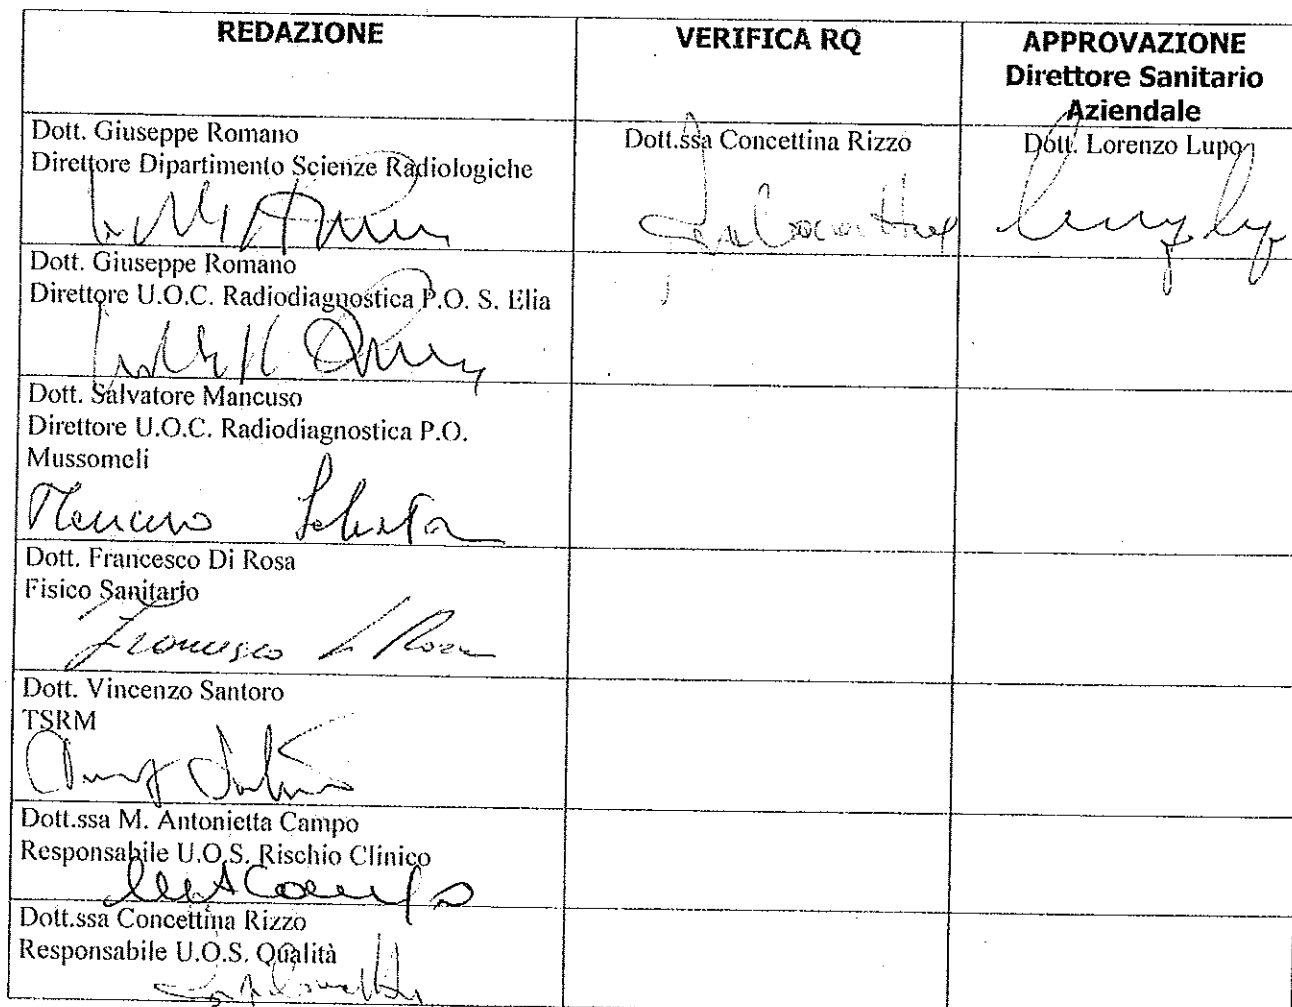 REDAZIONE
VERIFICA RQ
APPROVAZIONE
Direttore Sanitario
Aziendale
Dott. Giuseppe Romano
Direttore Dipartimento Scienze Radiologiche
Dott.ssa Concettina Rizzo
Dott. Lorenzo Lupo
Dott. Giuseppe Romano
Direttore U.O.C. Radiodiagnostica P.O. S. Elia
Dott. Salvatore Mancuso
Direttore U.O.C. Radiodiagnostica P.O.
Mussomeli
Dott. Francesco Di Rosa
Fisico Sanitario
Francesco Di Rosa
Dott. Vincenzo Santoro
TSRM
Dott.ssa M. Antonietta Campo
Responsabile U.O.S. Rischio Clinico
Dott.ssa Concettina Rizzo
Responsabile U.O.S. Qualità